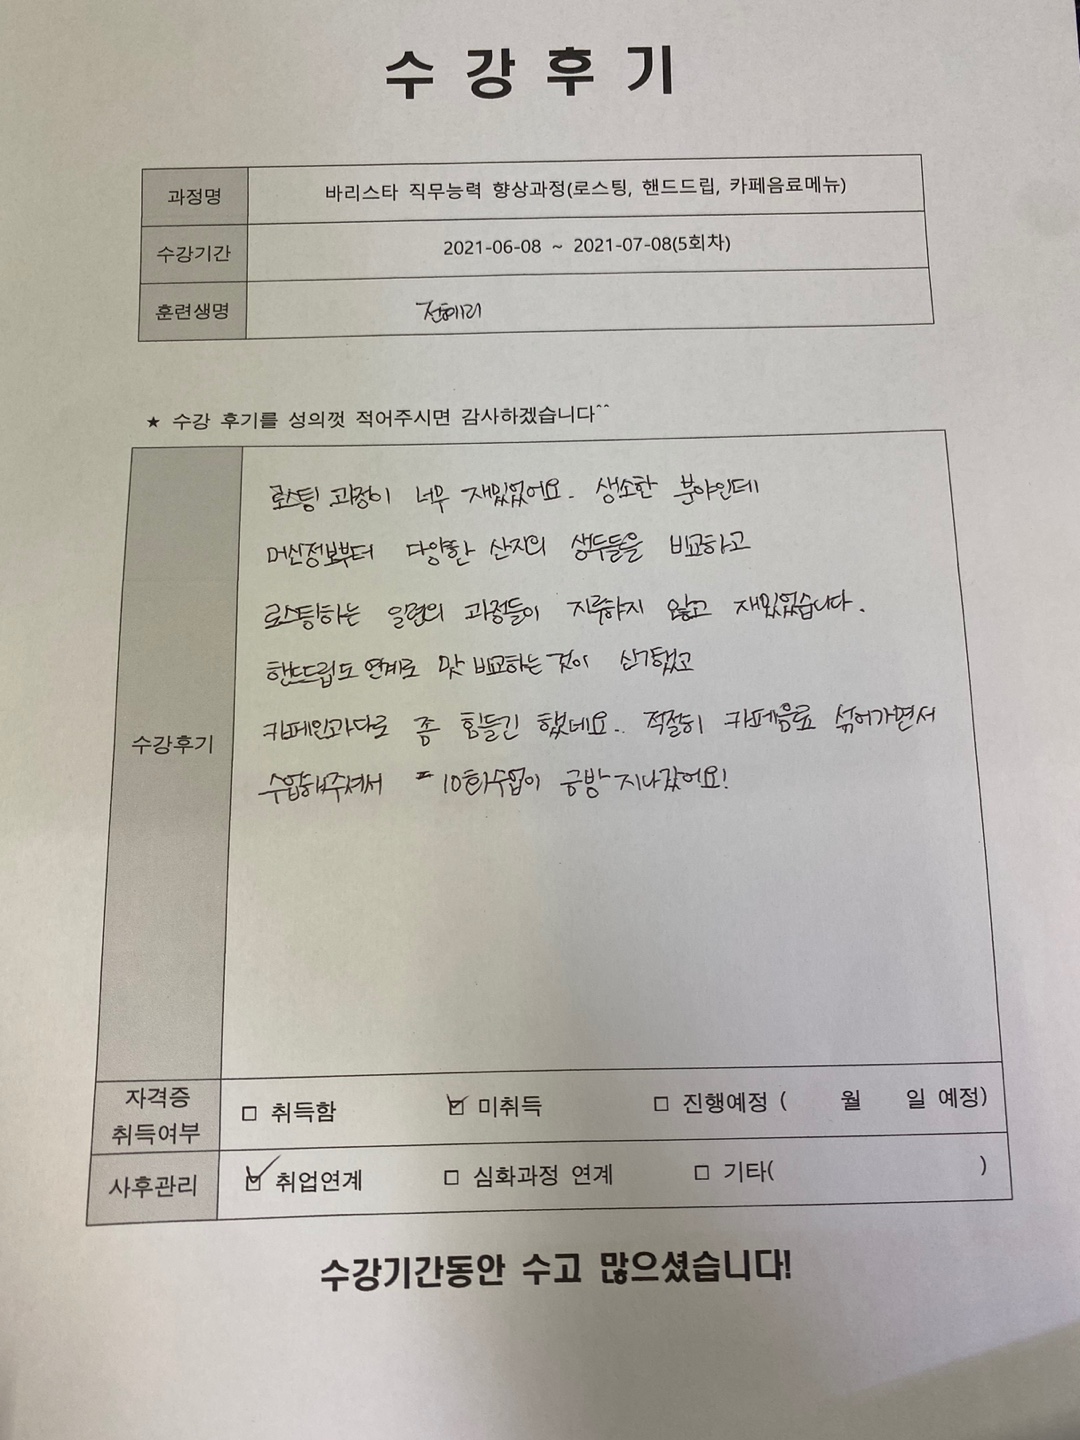 수강후기
과정명 바리스타 직무능력 향상과정(로스팅, 핸드드립, 카페음료메뉴)
수강기간 2021-06-08 ~ 2021-07-08(5회차)
훈련생명 전혜리
★ 수강 후기를 성의껏 적어주시면 감사하겠습니다^^
로스팅 과정이 너무 재밌었어요. 생소한 분야인데
머신정보부터 다양한 산지의 생두들을 비교하고
로스팅하는 일련의 과정들이 지루하지 않고 재밌었습니다.
핸드드립도 연계로 맛 비교하는 것이 신기했고
수강후기
카페인과다로 좀 힘들긴 했네요.. 적절히 카페음료 섞어가면서
수업해주셔서 10회수업이 금방 지나갔어요!
자격증 취득여부 □ 취득함 ☑ 미취득 □ 진행예정 ( 월 일 예정)
사후관리 ☑ 취업연계 □ 심화과정 연계 □ 기타( )
수강기간동안 수고 많으셨습니다!